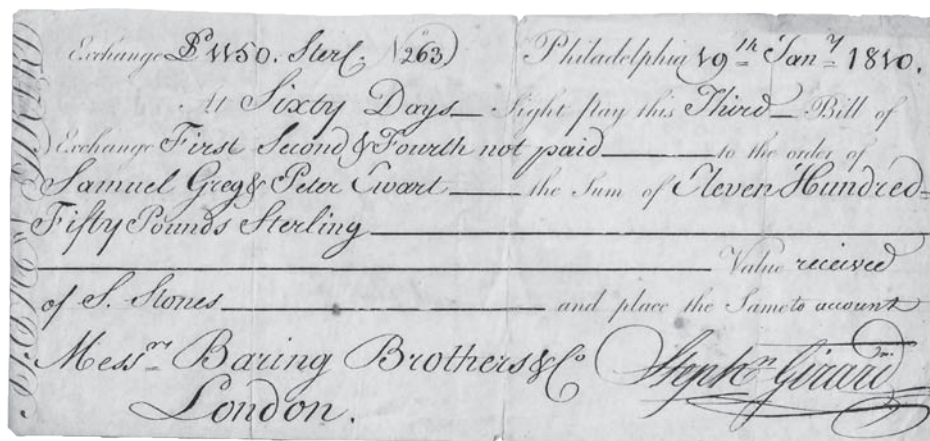 Exchange £ 1150. Sterl. No 263) Philadelphia 19th Jany 1810.
At Sixty Days Sight pay this Third Bill of
Exchange First Second & Fourth not paid to the order of
Samuel Greg & Peter Ewart the Sum of Eleven Hundred
Fifty Pounds Sterling
Value received
of S. Stones and place the Same to account
Messrs Baring Brothers & Co
London.
Stephn Girard